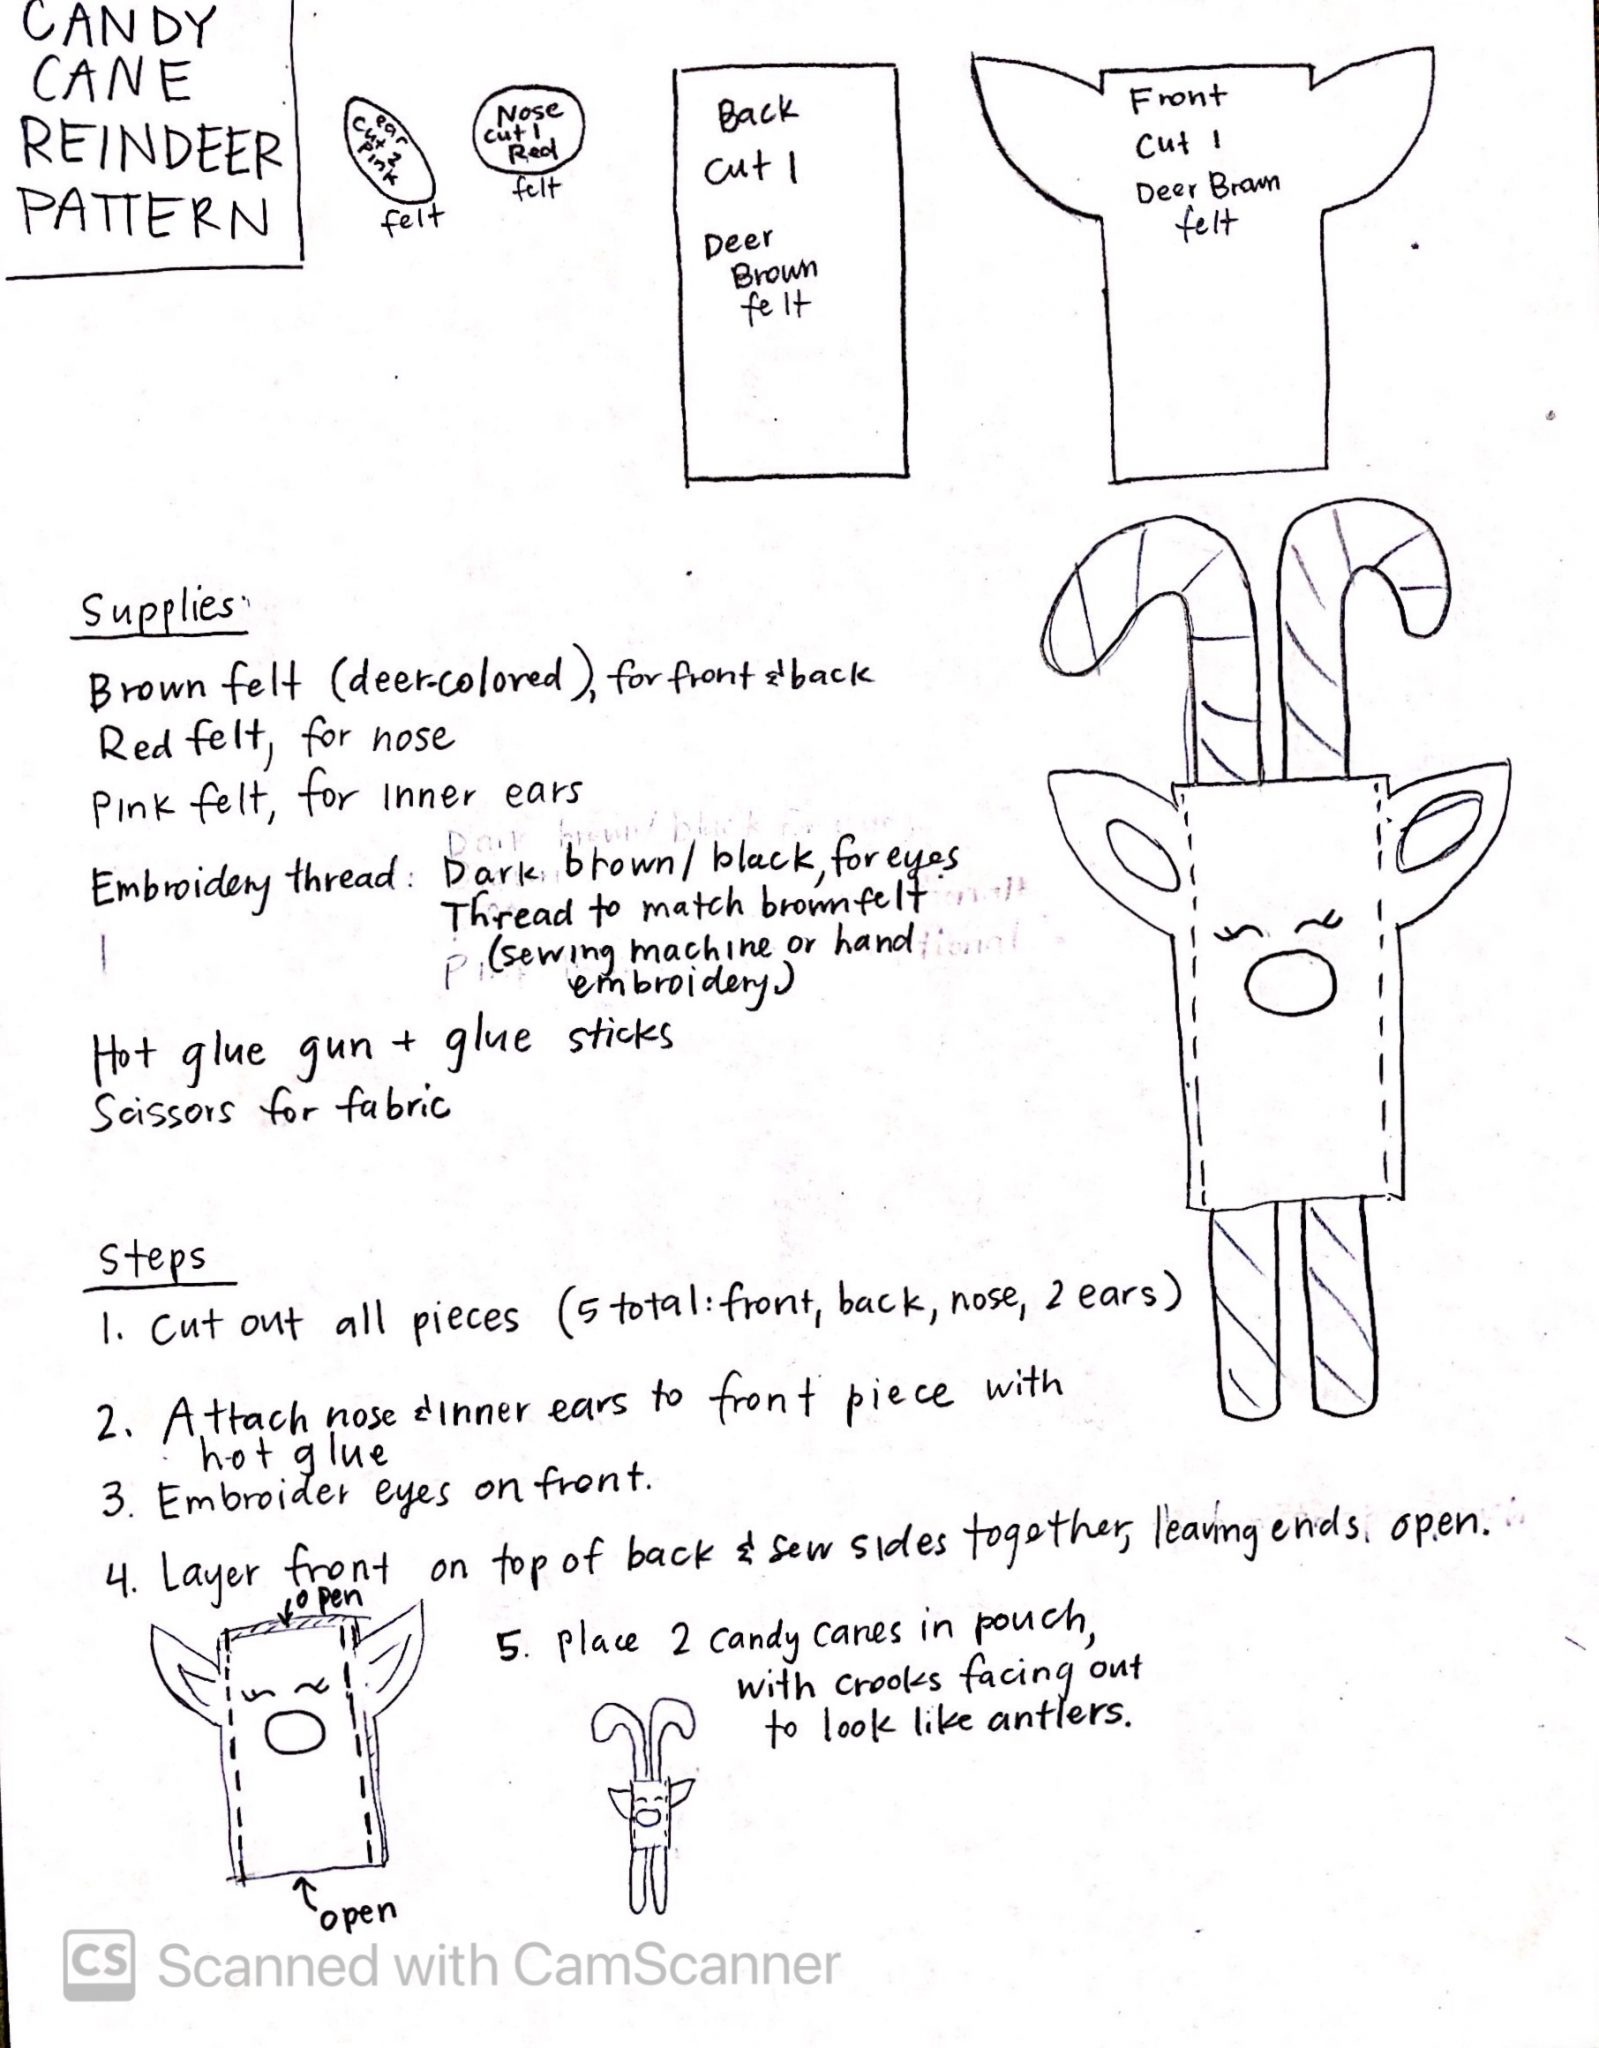 CANDY
CANE
REINDEER
PATTERN
ear
cut 2
pink
felt
Nose
cut 1
Red
felt
Back
Cut 1
Deer
Brown
felt
Front
Cut 1
Deer Brown
felt
Supplies:
Brown felt (deer-colored), for front & back
Red felt, for nose
Pink felt, for inner ears
Embroidery thread: Dark brown/black, for eyes
Thread to match brown felt
(sewing machine or hand
embroidery)
Hot glue gun + glue sticks
Scissors for fabric
Steps
1. Cut out all pieces (5 total: front, back, nose, 2 ears)
2. Attach nose & inner ears to front piece with
hot glue
3. Embroider eyes on front.
4. Layer front on top of back & sew sides together, leaving ends open.
open
open
5. Place 2 candy canes in pouch,
with crooks facing out
to look like antlers.
CS Scanned with CamScanner